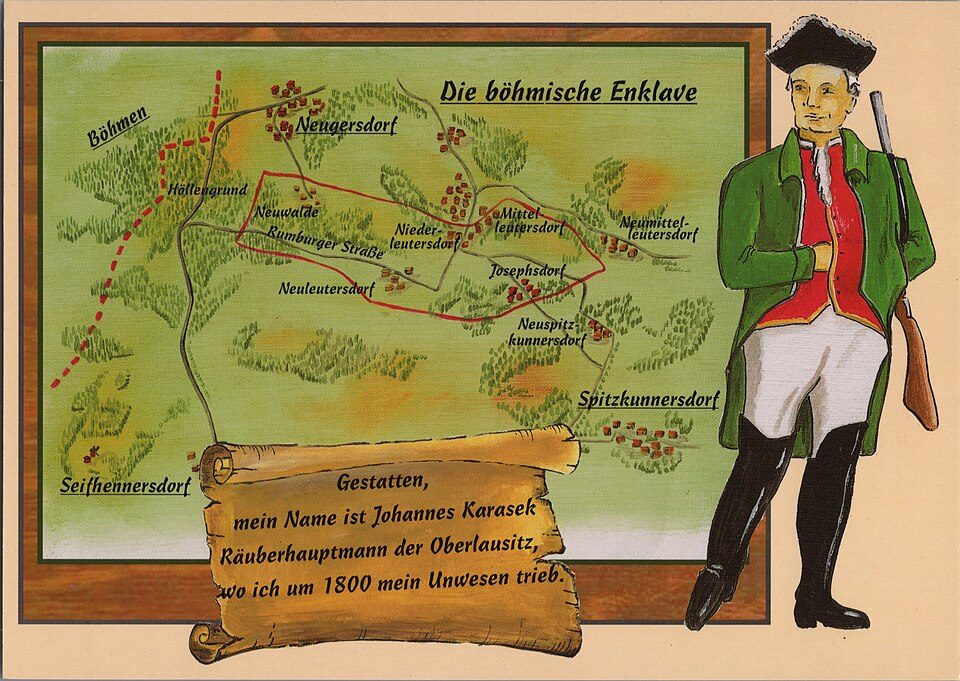 Die böhmische Enklave
Böhmen
Neugersdorf
Höllengrund
Neuwalde
Rumburger Straße
Nieder-
leutersdorf
Mittel-
leutersdorf
Neumittel-
leutersdorf
Neuleutersdorf
Josephsdorf
Neuspitz-
kunnersdorf
Spitzkunnersdorf
Seifhennersdorf
Gestatten,
mein Name ist Johannes Karasek
Räuberhauptmann der Oberlausitz,
wo ich um 1800 mein Unwesen trieb.